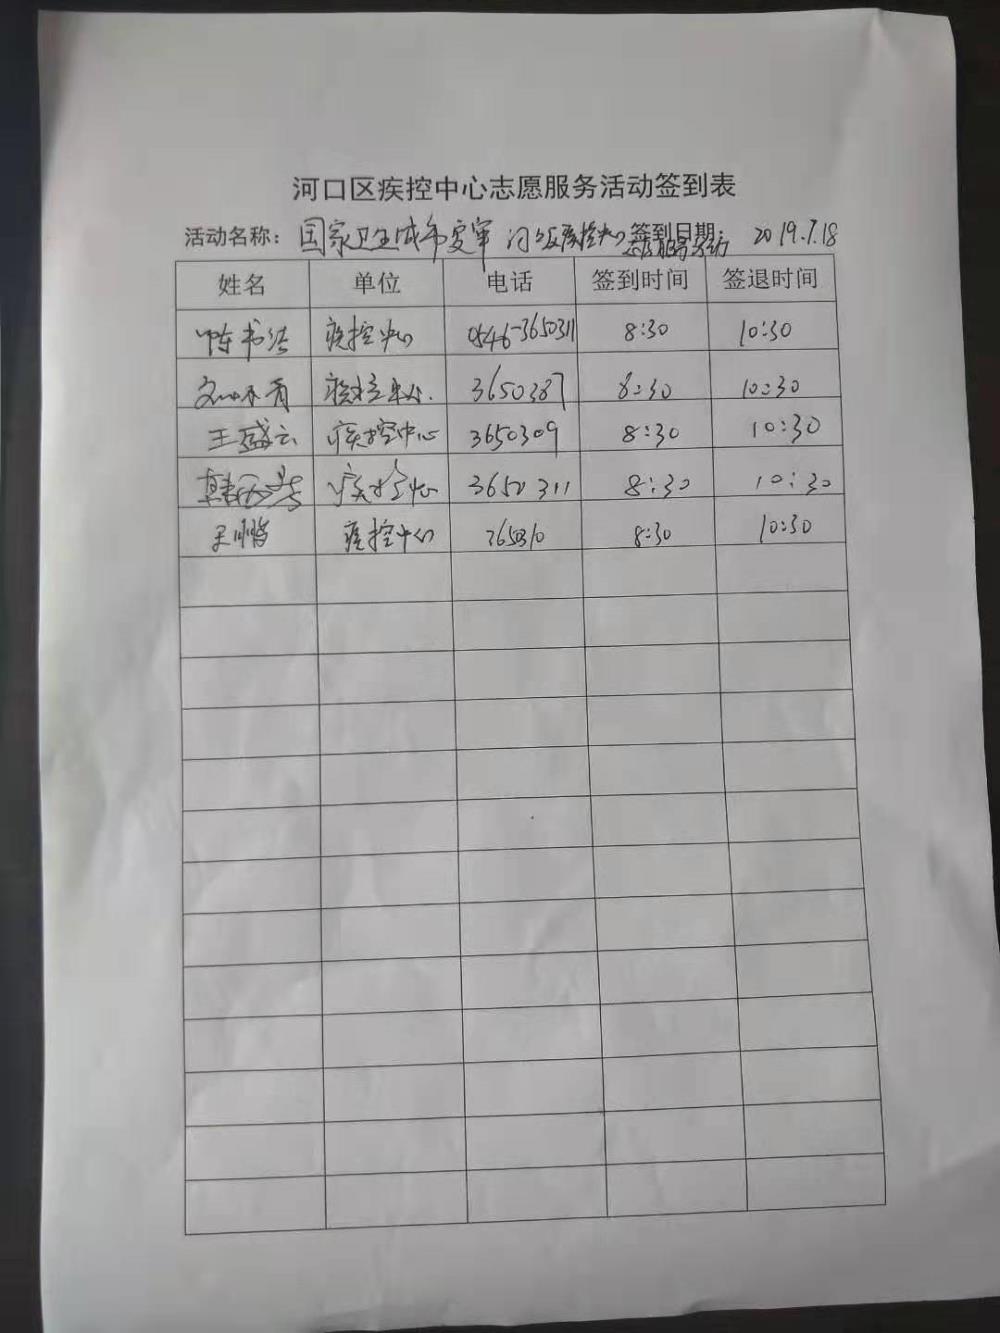 河口区疾控中心志愿服务活动签到表
活动名称：国家卫生城市复审 河口区疾控中心 签到日期：2019.7.18
志愿服务活动
姓名 单位 电话 签到时间 签退时间
陈书浩 疾控中心 0546-3650311 8:30 10:30
疾控中心 3650387 8:30 10:30
王盛云 疾控中心 3650309 8:30 10:30
韩西芳 疾控中心 3650311 8:30 10:30
疾控中心 3650310 8:30 10:30